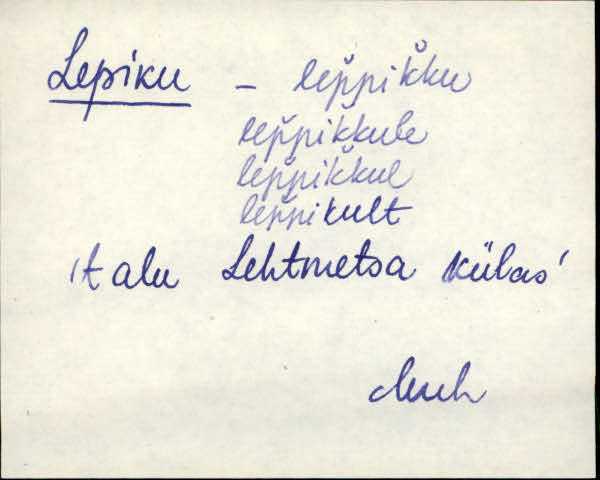 Lepiku – lep̆p̆ik̆ku
lep̆pikkule
lep̆pik̆kul
lep̆pikult
'talu Lehtmetsa külas'